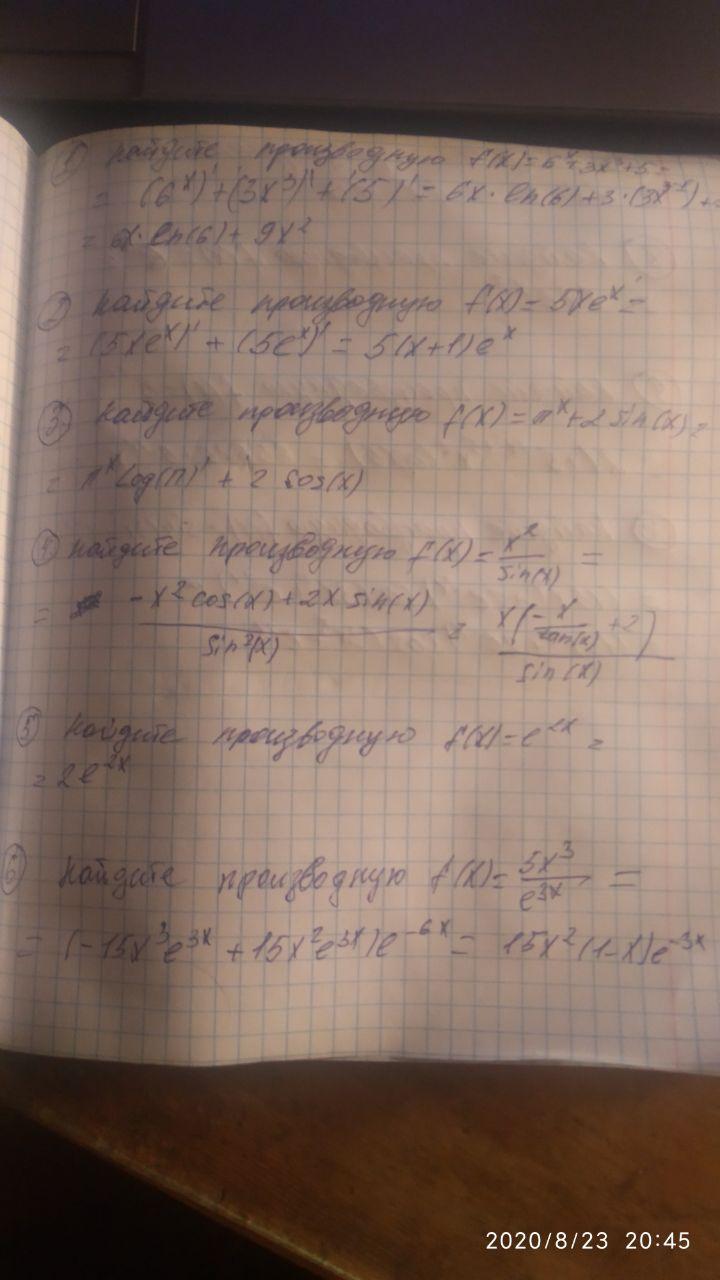 ① Найдите производную f(x)=6ˣ+3x³+5=
= (6ˣ)'+(3x³)'+(5)'= 6x·ln(6)+3·(3x³⁻¹)+
= 6x·ln(6)+9x²
② Найдите производную f(x)=5xeˣ=
= (5xeˣ)'+(5eˣ)'=5(x+1)eˣ
③ Найдите производную f(x)=πˣ+2sin(x)=
= πˣlog(π)'+2cos(x)
④ Найдите производную f(x)=x²/sin(x)=
= (-x²cos(x)+2x sin(x))/sin²(x) = x(-x/tan(x)+2)/sin(x)
⑤ Найдите производную f(x)=e²ˣ=
= 2e²ˣ
⑥ Найдите производную f(x)=5x³/e³ˣ=
= (-15x³e³ˣ+15x²e³ˣ)e⁻⁶ˣ=15x²(1-x)e⁻³ˣ
2020/8/23 20:45